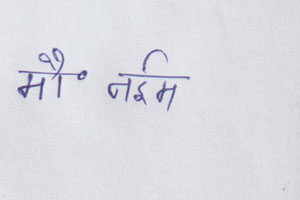 मौ॰ नईम